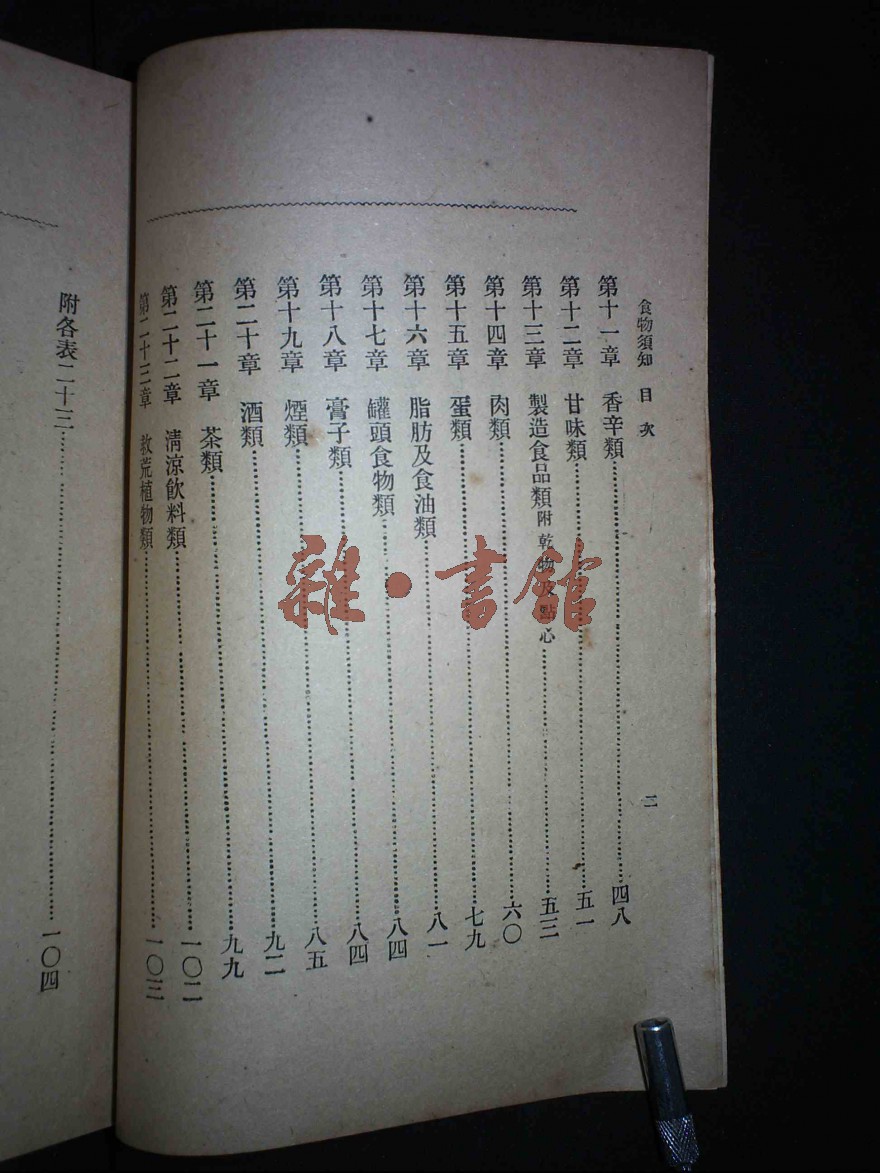 食物須知 目次 二
第十一章 香辛類 四八
第十二章 甘味類 五一
第十三章 製造食品類附乾物及點心 五三
第十四章 肉類 六〇
第十五章 蛋類 七九
第十六章 脂肪及食油類 八一
第十七章 罐頭食物類 八四
第十八章 膏子類 八四
第十九章 煙類 八五
第二十章 酒類 九二
第二十一章 茶類 九九
第二十二章 清涼飲料類 一〇二
第二十三章 救荒植物類 一〇三
附各表二十三 一〇四
雜·書館